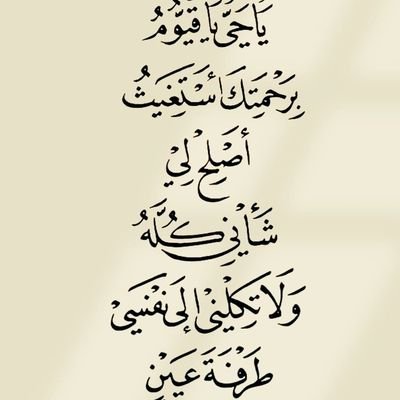 يَا حَيُّ يَا قَيُّوْمُ
بِرَحْمَتِكَ أَسْتَغِيْثُ
أَصْلِحْ لِيْ
شَأْنِيْ كُلَّهُ
وَلَا تَكِلْنِيْ إِلَى نَفْسِيْ
طَرْفَةَ عَيْنٍ